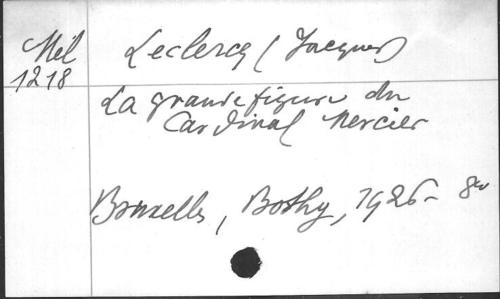 Mél
1218
Leclercq (Jacques)
La grande figure du
Cardinal Mercier
Bruxelles, Bothy, 1926 - 8vo